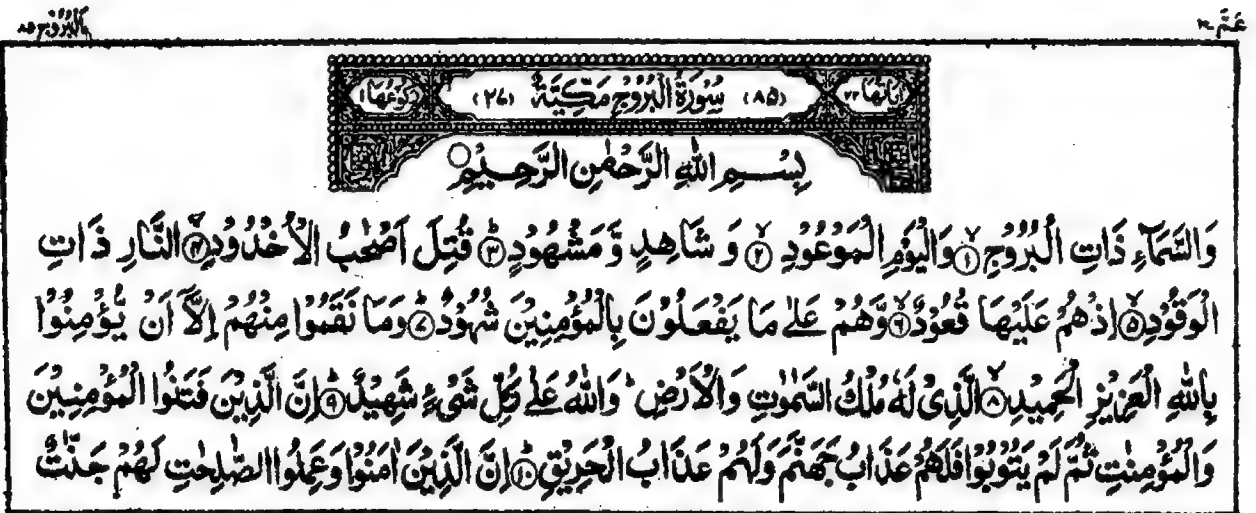 عَمَّ ٣٠
اَلْبُرُوْج ٨٥
اٰیَاتُهَا ٢٢
(٨٥) سُوْرَةُ الْبُرُوْجِ مَكِّیَّةٌ (٢٧)
رُكُوْعُهَا ١
بِسْمِ اللّٰهِ الرَّحْمٰنِ الرَّحِیْمِ
وَالسَّمَآءِ ذَاتِ الْبُرُوْجِ ۙ﴿١﴾ وَالْیَوْمِ الْمَوْعُوْدِ ۙ﴿٢﴾ وَ شَاهِدٍ وَّ مَشْهُوْدٍ ؕ﴿٣﴾ قُتِلَ اَصْحٰبُ الْاُخْدُوْدِ ۙ﴿٤﴾ النَّارِ ذَاتِ
الْوَقُوْدِ ۙ﴿٥﴾ اِذْ هُمْ عَلَیْهَا قُعُوْدٌ ۙ﴿٦﴾ وَّهُمْ عَلٰى مَا یَفْعَلُوْنَ بِالْمُؤْمِنِیْنَ شُهُوْدٌ ؕ﴿٧﴾ وَمَا نَقَمُوْا مِنْهُمْ اِلَّاۤ اَنْ یُّؤْمِنُوْا
بِاللّٰهِ الْعَزِیْزِ الْحَمِیْدِ ۙ﴿٨﴾ الَّذِیْ لَهٗ مُلْكُ السَّمٰوٰتِ وَالْاَرْضِ ؕ وَاللّٰهُ عَلٰى كُلِّ شَیْءٍ شَهِیْدٌ ؕ﴿٩﴾ اِنَّ الَّذِیْنَ فَتَنُوا الْمُؤْمِنِیْنَ
وَالْمُؤْمِنٰتِ ثُمَّ لَمْ یَتُوْبُوْا فَلَهُمْ عَذَابُ جَهَنَّمَ وَلَهُمْ عَذَابُ الْحَرِیْقِ ؕ﴿١٠﴾ اِنَّ الَّذِیْنَ اٰمَنُوْا وَعَمِلُوا الصّٰلِحٰتِ لَهُمْ جَنّٰتٌ